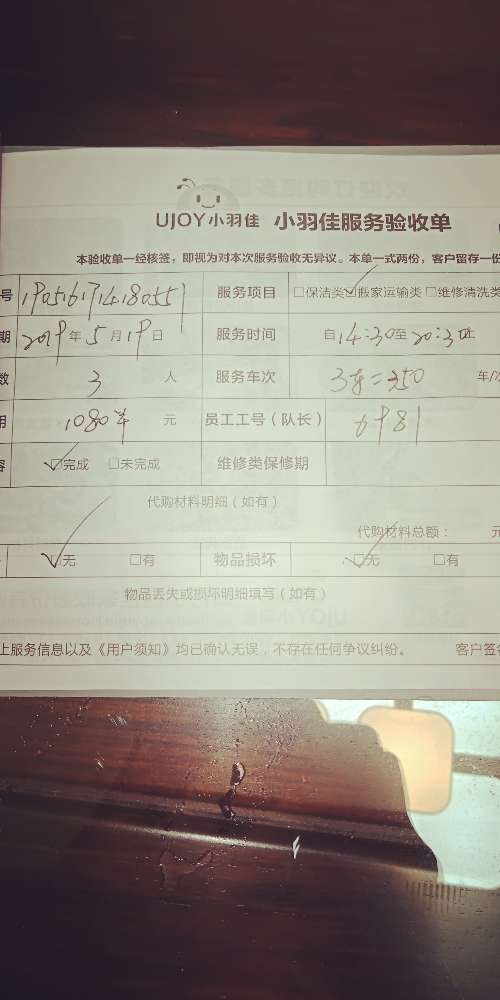 UJOY小羽佳 小羽佳服务验收单
本验收单一经核签，即视为对本次服务验收无异议。本单一式两份，客户留存一份
号 服务项目 □保洁类☑搬家运输类 □维修清洗类
期 2019年5月19日 服务时间 自14:30至20:30止
数 3 人 服务车次 车/次
用 1080 元 员工工号（队长） 6981
容 ☑完成 □未完成 维修类保修期
代购材料明细（如有）
代购材料总额： 元
☑无 □有 物品损坏 ☑无 □有
物品丢失或损坏明细填写（如有）
上服务信息以及《用户须知》均已确认无误，不存在任何争议纠纷。 客户签名